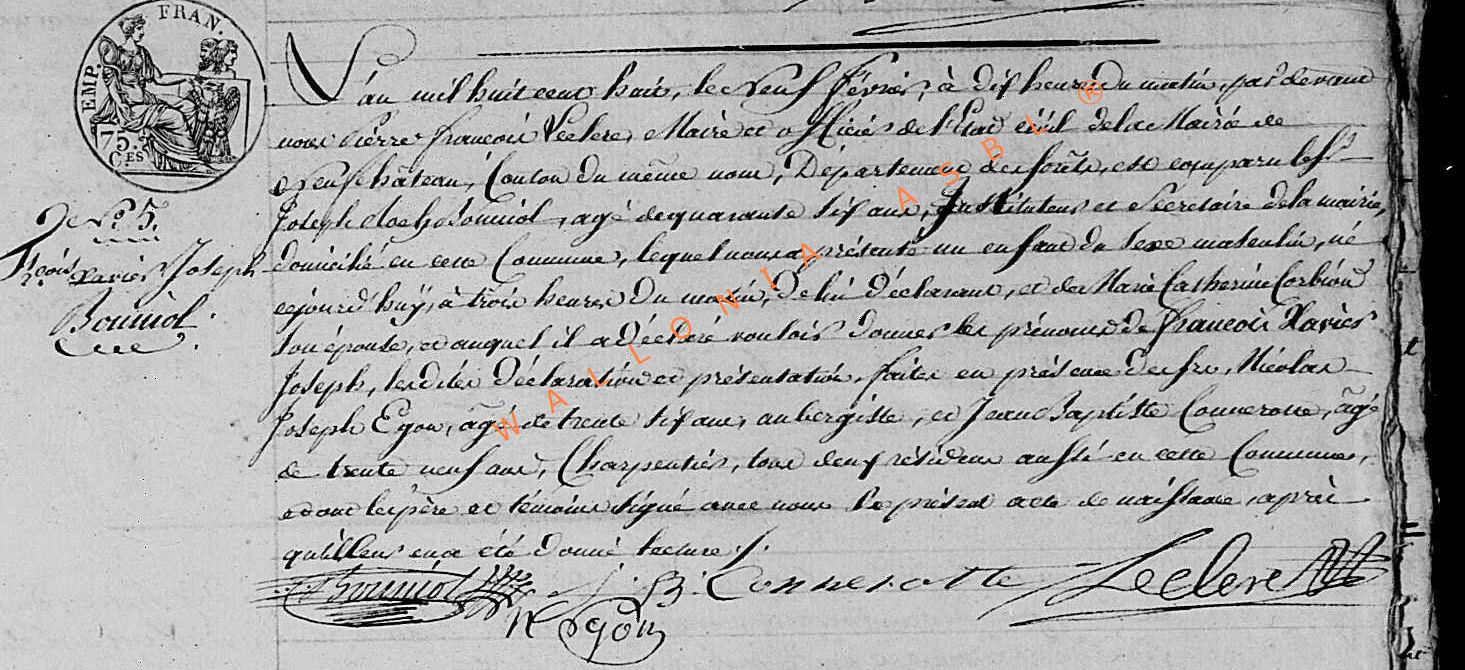 FRAN.
EMP.
75.
CES
L'an mil huit cent huit, le neuf février, à dix heures du matin, par devant
nous Pierre françois Leclere, Maire et officier de l'Etat civil de la Mairie de
Neufchâteau, Canton du même nom, Département des forêts, est comparu le Sr
Joseph Bouniol, agé de quarante six ans, Instituteur et Sécretaire de la mairie,
domicilié en cette Commune, lequel nous a présenté un enfant du sexe masculin, né
cejourd'huy, à trois heures du matin, de lui déclarant, et de Marie Catherine Corbion
son épouse, et auquel il a déclaré vouloir donner les prénoms de françois Xavier
Joseph, lesdites déclaration et présentation, faites en présence des srs. Nicolas
Joseph Egon, âgé de trente six ans, aubergiste, et Jean Baptiste Connerotte, âgé
de trente neuf ans, Charpentier, tous deux résidens aussi en cette Commune,
et ont les père et témoins signé avec nous le présent acte de naissance, après
qu'il leur en a été donné lecture ./.
N° 5.
frçois Xavier Joseph
Bouniol.
Bouniol J. B. Connerotte Leclere
N Egon
WALLONIA ASBL ®